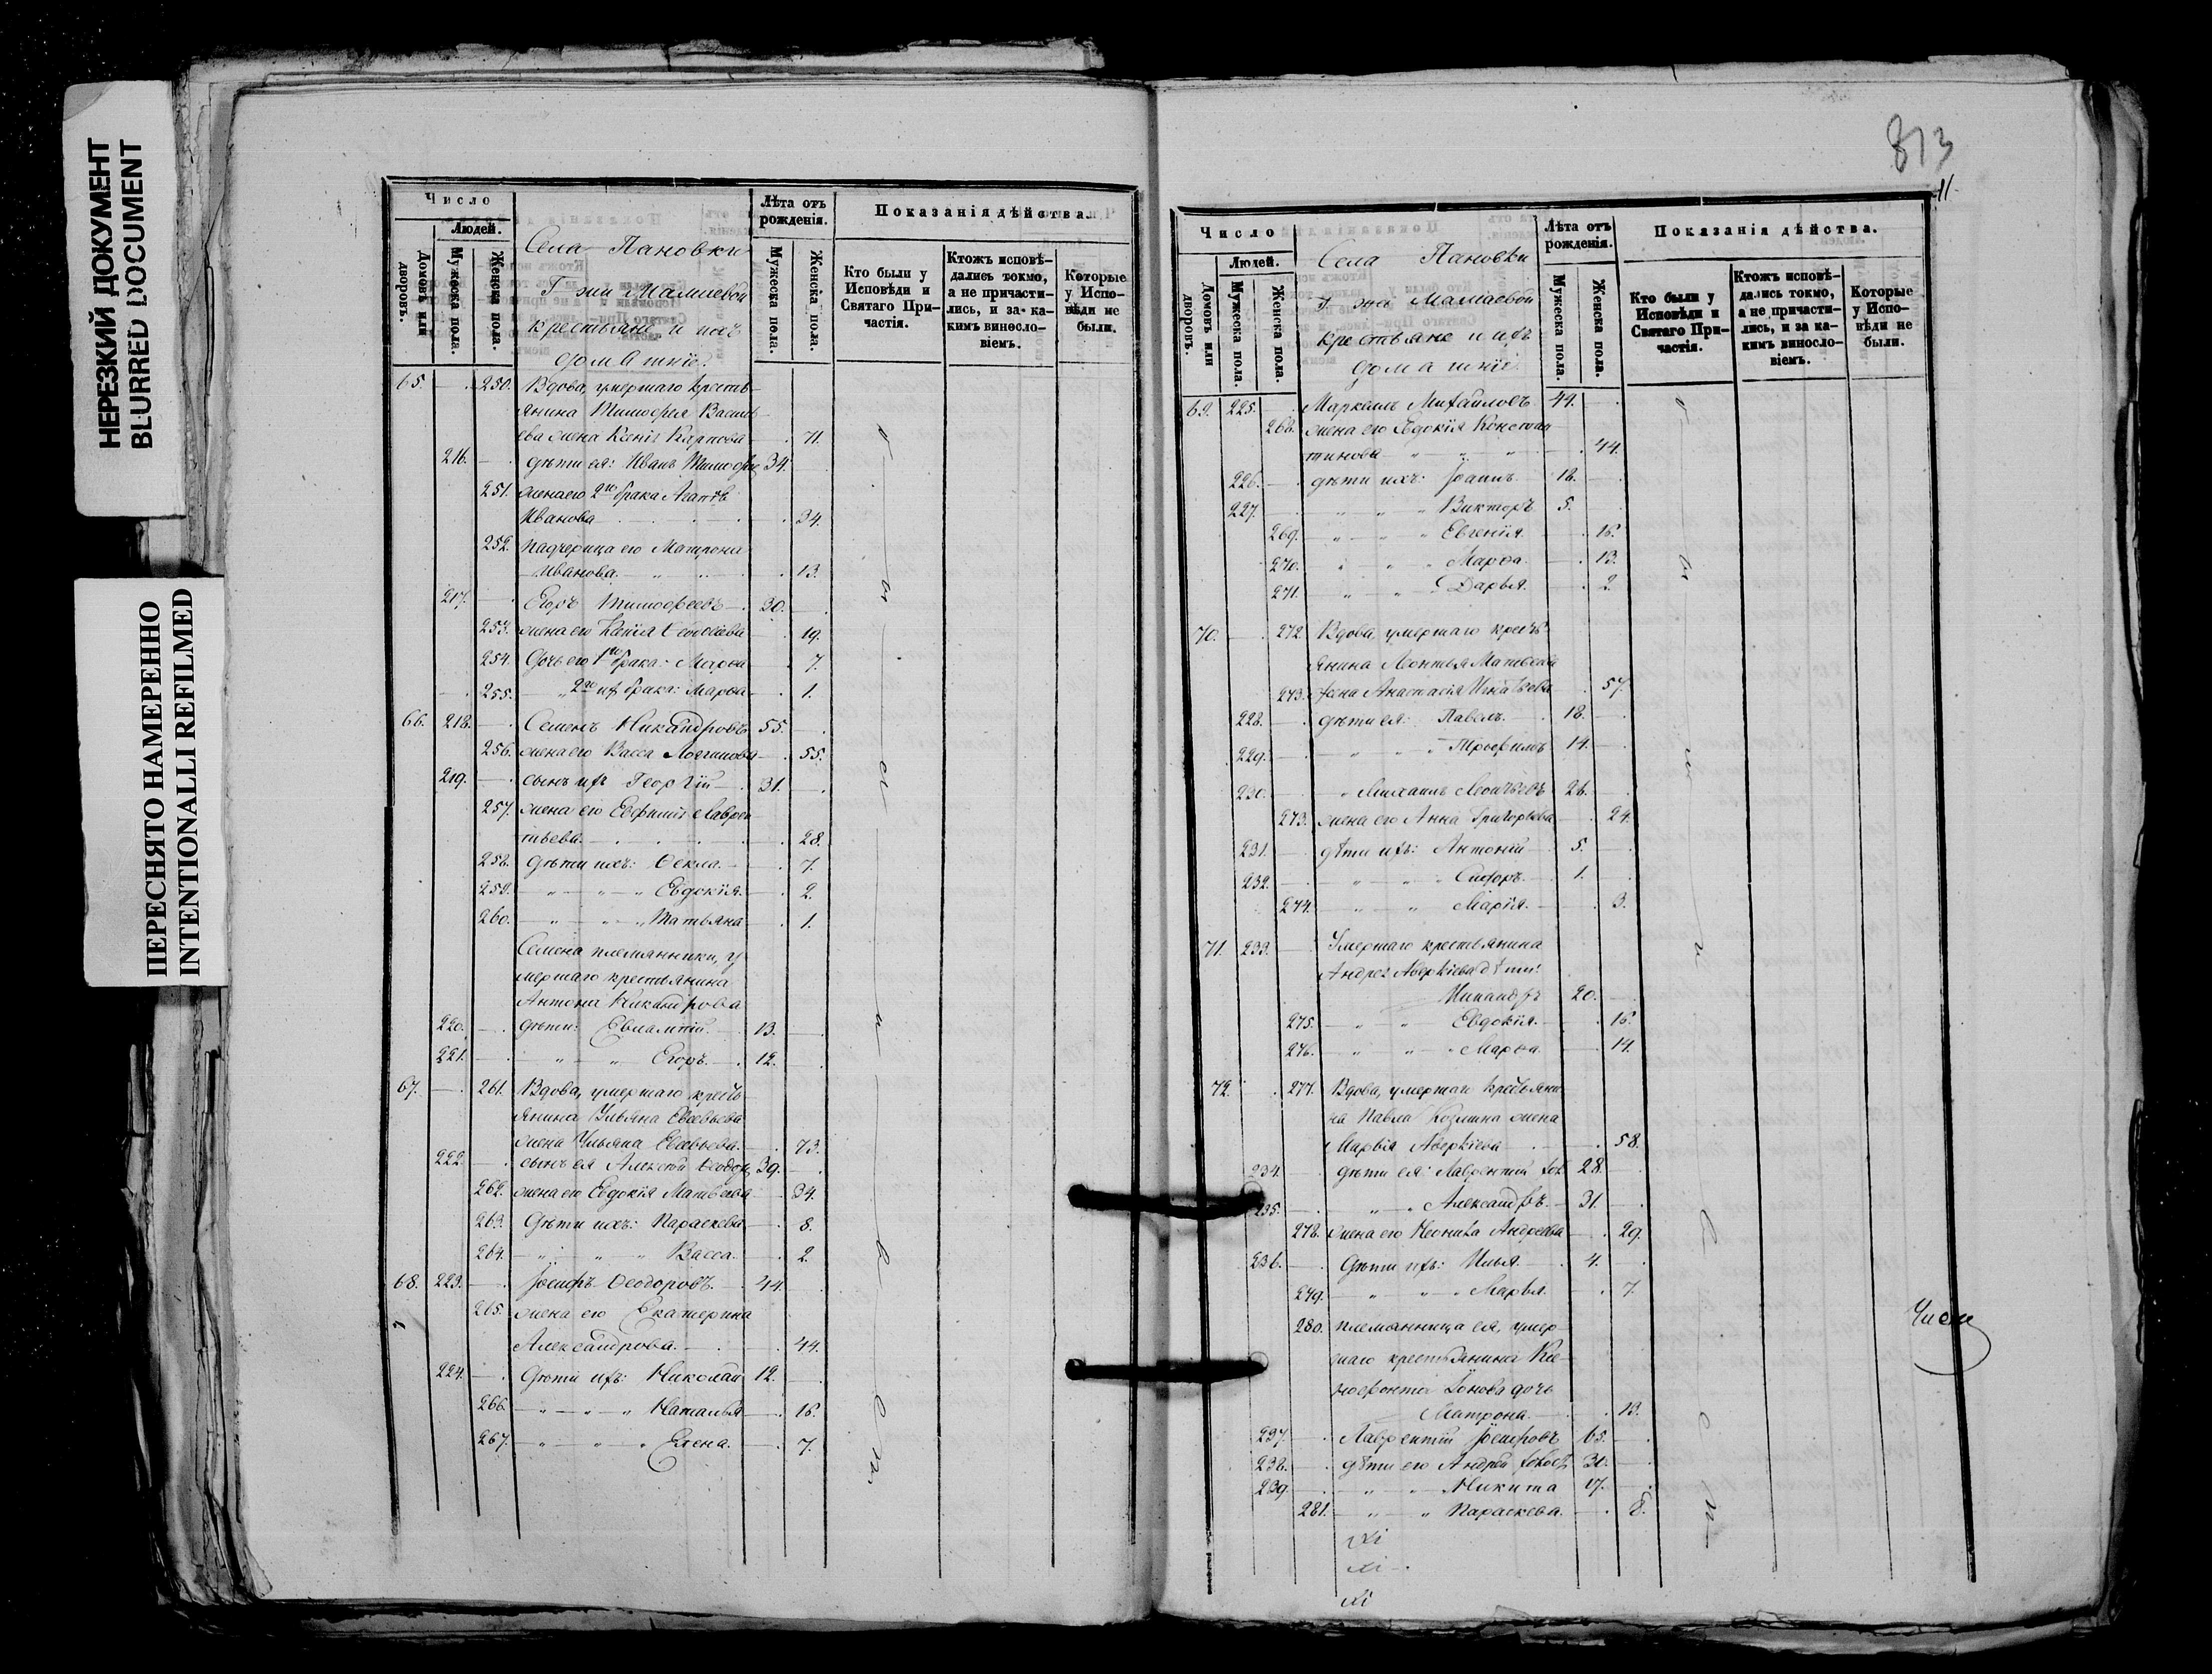 НЕРЕЗКИЙ ДОКУМЕНТ
BLURRED DOCUMENT
ПЕРЕСНЯТО НАМЕРЕННО
INTENTIONALLI REFILMED
Число
Людей.
Домовъ или дворовъ.
Мужеска пола.
Женска пола.
Села Пановки
Г жи
крестьяне и ихъ
домашніе.
Лѣта отъ рожденія.
Мужеска пола.
Женска пола.
Показанія дѣйства.
Кто были у Исповѣди и Святаго Причастія.
Ктожъ исповѣдались токмо, а не причастились, и за какимъ винословіемъ.
Которые у Исповѣди не были.
65. 250. Вдова, умершаго кресть
янина Тимофея Василь
ева жена Ксенія Карпова 71.
216. дѣти ея: Иванъ Тимофее 34.
251. жена его 2го брака Агапія
Иванова 34.
252. падчерица его Матрона
Иванова. 13.
217. Егоръ Тимофеевъ 30.
253. жена его Ксенія 19.
254. Дочь его 1го брака: Марѳа 7.
255. 2го их брака: Марѳа 1.
66. 218. Семенъ Никандровъ 55.
256. жена его Васса Логгинова 55.
219. сынъ их Георгій 31.
257. жена его Евфимія Лаврен
тьева. 28.
258. Дѣти ихъ: Ѳекла. 7.
259. " " " Евдокія. 2.
260. " " " Татьяна 1.
Семена племянники, у
мершаго крестьянина
Антона Никандрова
220. дѣти: Евлампій. 13.
221. " " Егоръ. 12.
67. 261. Вдова, умершаго кресть
янина Ульяна Евсевьева
жена Ульяна Евсевьева. 73.
222. сынъ ея Алексѣй Ѳеодор 39.
262. жена его Евдокія Матвѣева 34.
263. Дѣти ихъ: Параскева 8.
264. " " " Васса. 2.
68. 223. Іосифъ Ѳеодоровъ. 44.
265. жена его Екатерина
Александрова. 44.
224. Дѣти ихъ: Николай 12.
266. " " " Наталья 16.
267. " " " Елена. 7.
813
11
Число
Людей.
Домовъ или дворовъ.
Мужеска пола.
Женска пола.
Села Пановки
г жи
крестьяне и ихъ
домашніе.
Лѣта отъ рожденія.
Мужеска пола.
Женска пола.
Показанія дѣйства.
Кто были у Исповѣди и Святаго Причастія.
Ктожъ исповѣдались токмо, а не причастились, и за какимъ винословіемъ.
Которые у Исповѣди не были.
69. 225. Маркелъ Михайловъ 49.
268. жена его Евдокія Констан
тинова " " " 44.
226. дѣти ихъ: Іоаннъ 18.
227. " " " Викторъ 5.
269. " " " Евгенія. 16.
270. " " " Марѳа. 13.
271. " " " Дарья. 2.
70. 272. Вдова, умершаго кресть
янина Леонтья Матвѣева
273. жена Анастасія Игнатьева 57.
228. дѣти ея: Павелъ. 18.
229. " " " Трофимъ 14.
230. " Михаилъ Леонтьевъ 26.
273. жена его Анна Григорьева 24.
231. дѣти ихъ: Антоній 5.
232. " " " Сидоръ. 1.
274. " " Марія. 3.
71. 233. Умершаго крестьянина
Андрея Аверкіева дѣти:
Никандръ 20.
275. " " Евдокія. 16.
276. " " " Марѳа. 14.
72. 277. Вдова, умершаго крестьяни
на Павла Козмина жена
Марѳія Аверкіева 58.
234. дѣти ея: Лаврентій 28.
235. " " Александръ. 31.
278. жена его Неонила Андреева 29.
236. Дѣти ихъ: Илья. 4.
279. " " " Марья. 7.
280. племянница ея, умер
шаго крестьянина Ксе
нофонта дочь
Матрона. 13.
237. Лаврентій Іосифовъ 65.
238. дѣти его Андрей 30.
239. " " Никита 17.
281. " " " Параскева. 8.